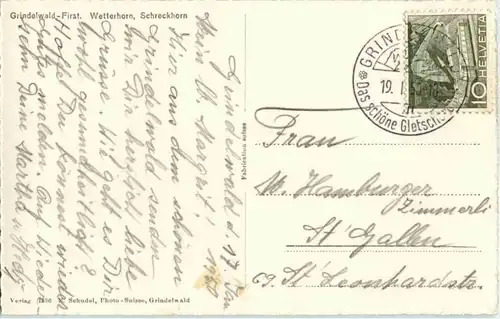 Grindelwald-First. Wetterhorn, Schreckhorn
Grindelwald d. 17. Jan.
Mein lb. Margrit!
Hier aus dem schönen
Grindelwald senden
wir Dir herzlich liebe
Grüsse. Wie geht es Dir
wohl gesundheitlich?
Hoffe, Du kannst wieder
Gutes melden. Auf Wieder-
sehn Deine Martha
Fabrication suisse
Verlag Schudel, Photo-Suisse, Grindelwald
GRINDEL
19. I.
Das schöne Gletsch
HELVETIA
10
Frau
M. Hamburger
Zimmerli
St Gallen
69. St Leonhardstr.